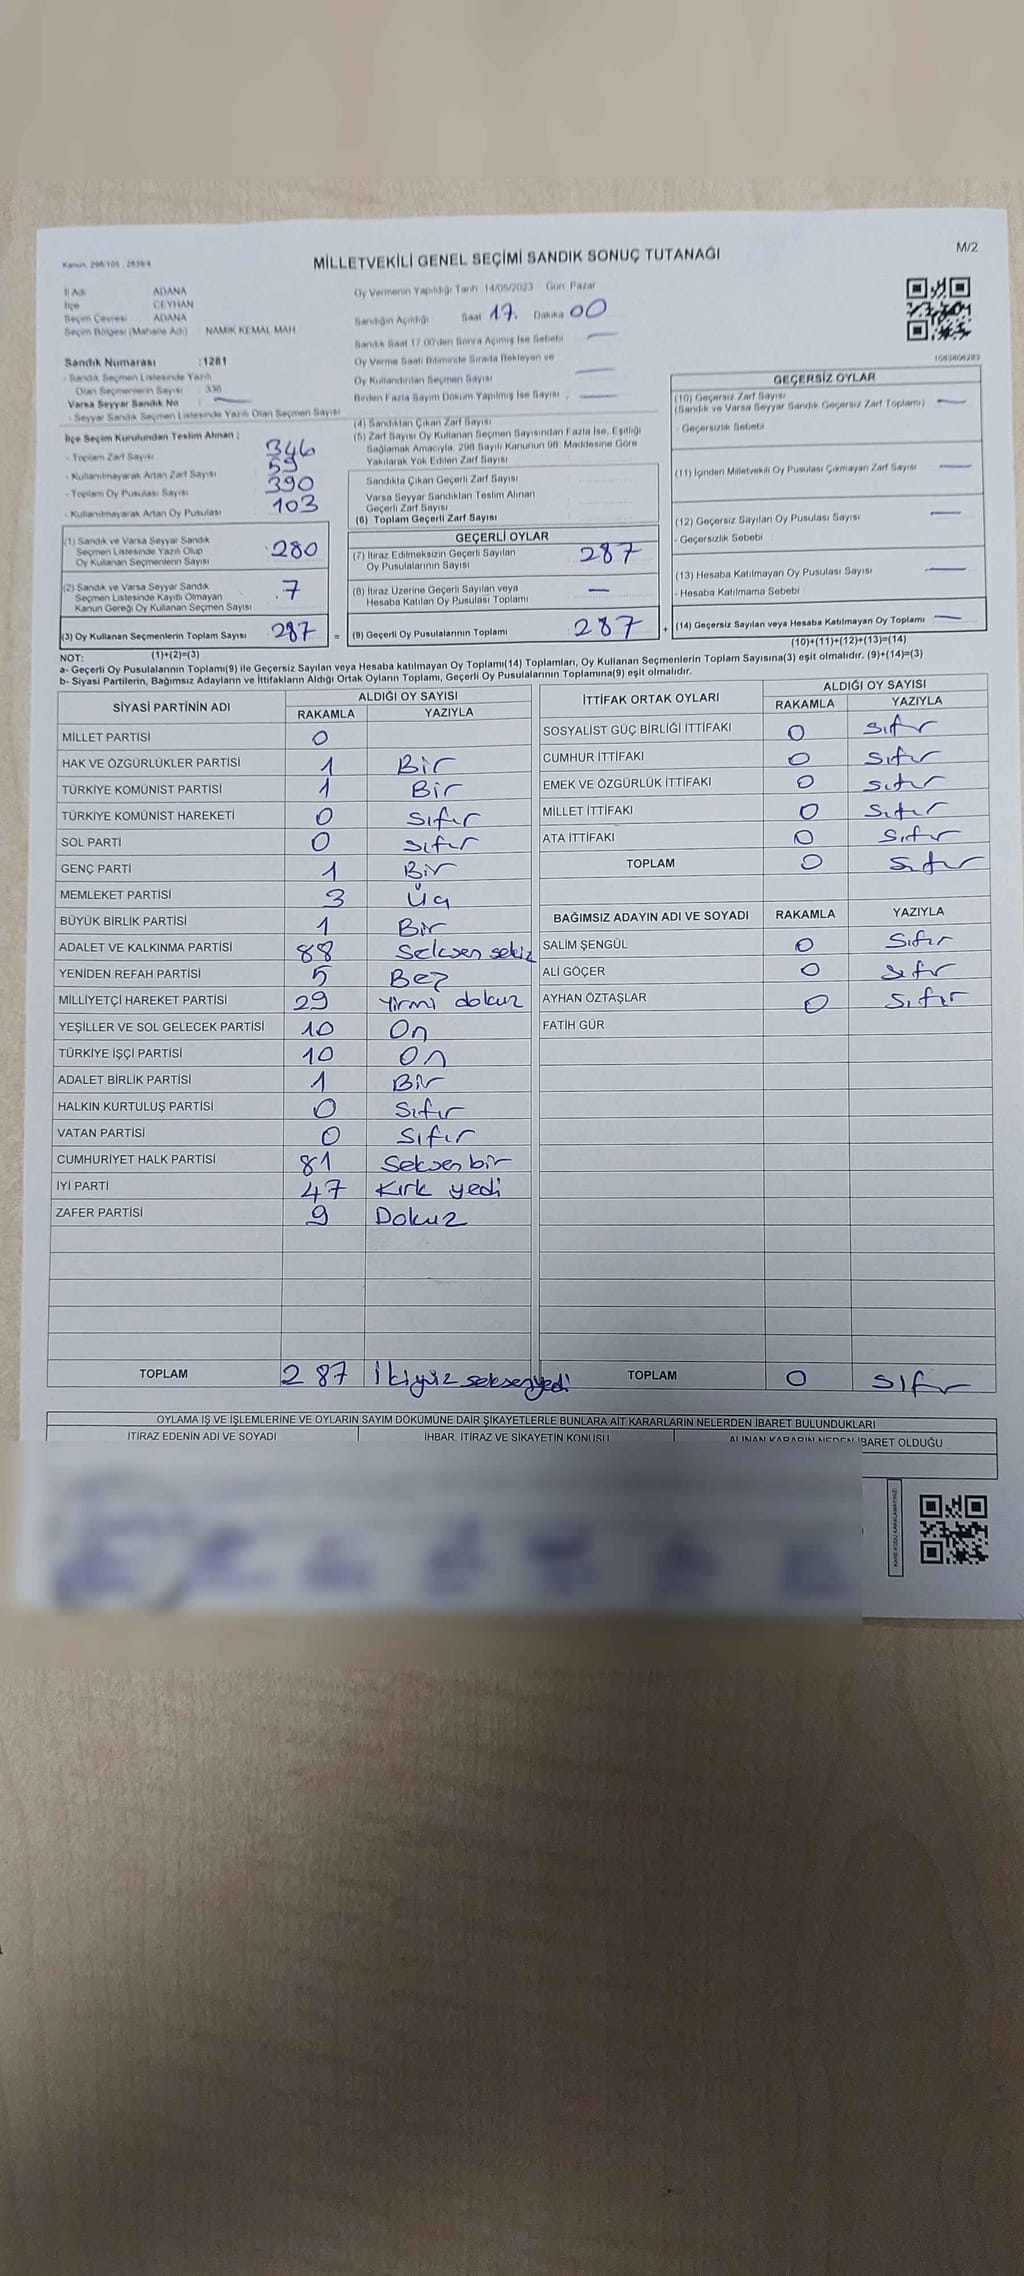 Kanun: 298/105 , 2839/4
MİLLETVEKİLİ GENEL SEÇİMİ SANDIK SONUÇ TUTANAĞI
M/2
İl Adı ADANA
İlçe CEYHAN
Seçim Çevresi ADANA
Seçim Bölgesi (Mahalle Adı) : NAMIK KEMAL MAH
Oy Vermenin Yapıldığı Tarih :14/05/2023 Gün: Pazar
Sandığın Açıldığı Saat 17. Dakika 00
Sandık Saat 17.00'den Sonra Açılmış İse Sebebi
Oy Verme Saati Bitiminde Sırada Bekleyen ve
Oy Kullandırılan Seçmen Sayısı
Birden Fazla Sayım Döküm Yapılmış İse Sayısı :
Sandık Numarası :1281
- Sandık Seçmen Listesinde Yazılı
Olan Seçmenlerin Sayısı : 336
Varsa Seyyar Sandık No :
- Seyyar Sandık Seçmen Listesinde Yazılı Olan Seçmen Sayısı
İlçe Seçim Kurulundan Teslim Alınan :
- Toplam Zarf Sayısı 346
- Kullanılmayarak Artan Zarf Sayısı 59
- Toplam Oy Pusulası Sayısı 390
- Kullanılmayarak Artan Oy Pusulası 103
(1) Sandık ve Varsa Seyyar Sandık
Seçmen Listesinde Yazılı Olup
Oy Kullanan Seçmenlerin Sayısı 280
(2) Sandık ve Varsa Seyyar Sandık
Seçmen Listesinde Kayıtlı Olmayan
Kanun Gereği Oy Kullanan Seçmen Sayısı 7
(3) Oy Kullanan Seçmenlerin Toplam Sayısı 287 =
(4) Sandıktan Çıkan Zarf Sayısı
(5) Zarf Sayısı Oy Kullanan Seçmen Sayısından Fazla İse, Eşitliği
Sağlamak Amacıyla, 298 Sayılı Kanunun 98. Maddesine Göre
Yakılarak Yok Edilen Zarf Sayısı
Sandıkta Çıkan Geçerli Zarf Sayısı
Varsa Seyyar Sandıktan Teslim Alınan
Geçerli Zarf Sayısı
(6) Toplam Geçerli Zarf Sayısı
GEÇERLİ OYLAR
(7) İtiraz Edilmeksizin Geçerli Sayılan
Oy Pusulalarının Sayısı 287
(8) İtiraz Üzerine Geçerli Sayılan veya
Hesaba Katılan Oy Pusulası Toplamı —
(9) Geçerli Oy Pusulalarının Toplamı 287 +
GEÇERSİZ OYLAR
(10) Geçersiz Zarf Sayısı
(Sandık ve Varsa Seyyar Sandık Geçersiz Zarf Toplamı) —
- Geçersizlik Sebebi
(11) İçinden Milletvekili Oy Pusulası Çıkmayan Zarf Sayısı —
(12) Geçersiz Sayılan Oy Pusulası Sayısı —
- Geçersizlik Sebebi :
(13) Hesaba Katılmayan Oy Pusulası Sayısı —
- Hesaba Katılmama Sebebi :
(14) Geçersiz Sayılan veya Hesaba Katılmayan Oy Toplamı —
(10)+(11)+(12)+(13)=(14)
NOT: (1)+(2)=(3)
a- Geçerli Oy Pusulalarının Toplamı(9) ile Geçersiz Sayılan veya Hesaba katılmayan Oy Toplamı(14) Toplamları, Oy Kullanan Seçmenlerin Toplam Sayısına(3) eşit olmalıdır. (9)+(14)=(3)
b- Siyasi Partilerin, Bağımsız Adayların ve İttifakların Aldığı Ortak Oyların Toplamı, Geçerli Oy Pusulalarının Toplamına(9) eşit olmalıdır.
SİYASİ PARTİNİN ADI ALDIĞI OY SAYISI
RAKAMLA YAZIYLA
MİLLET PARTİSİ 0
HAK VE ÖZGÜRLÜKLER PARTİSİ 1 Bir
TÜRKİYE KOMÜNİST PARTİSİ 1 Bir
TÜRKİYE KOMÜNİST HAREKETİ 0 Sıfır
SOL PARTİ 0 Sıfır
GENÇ PARTİ 1 Bir
MEMLEKET PARTİSİ 3 Üç
BÜYÜK BİRLİK PARTİSİ 1 Bir
ADALET VE KALKINMA PARTİSİ 88 Seksen sekiz
YENİDEN REFAH PARTİSİ 5 Beş
MİLLİYETÇİ HAREKET PARTİSİ 29 Yirmi dokuz
YEŞİLLER VE SOL GELECEK PARTİSİ 10 On
TÜRKİYE İŞÇİ PARTİSİ 10 On
ADALET BİRLİK PARTİSİ 1 Bir
HALKIN KURTULUŞ PARTİSİ 0 Sıfır
VATAN PARTİSİ 0 Sıfır
CUMHURİYET HALK PARTİSİ 81 Seksen bir
İYİ PARTİ 47 Kırk yedi
ZAFER PARTİSİ 9 Dokuz
TOPLAM 287 İkiyüz seksenyedi
İTTİFAK ORTAK OYLARI ALDIĞI OY SAYISI
RAKAMLA YAZIYLA
SOSYALİST GÜÇ BİRLİĞİ İTTİFAKI 0 Sıfır
CUMHUR İTTİFAKI 0 Sıfır
EMEK VE ÖZGÜRLÜK İTTİFAKI 0 Sıfır
MİLLET İTTİFAKI 0 Sıfır
ATA İTTİFAKI 0 Sıfır
TOPLAM 0 Sıfır
BAĞIMSIZ ADAYIN ADI VE SOYADI RAKAMLA YAZIYLA
SALİM ŞENGÜL 0 Sıfır
ALİ GÖÇER 0 Sıfır
AYHAN ÖZTAŞLAR 0 Sıfır
FATİH GÜR
TOPLAM 0 Sıfır
OYLAMA İŞ VE İŞLEMLERİNE VE OYLARIN SAYIM DÖKÜMÜNE DAİR ŞİKAYETLERLE BUNLARA AİT KARARLARIN NELERDEN İBARET BULUNDUKLARI
İTİRAZ EDENİN ADI VE SOYADI İHBAR, İTİRAZ VE ŞİKAYETİN KONUSU ALINAN KARARIN NEDEN İBARET OLDUĞU